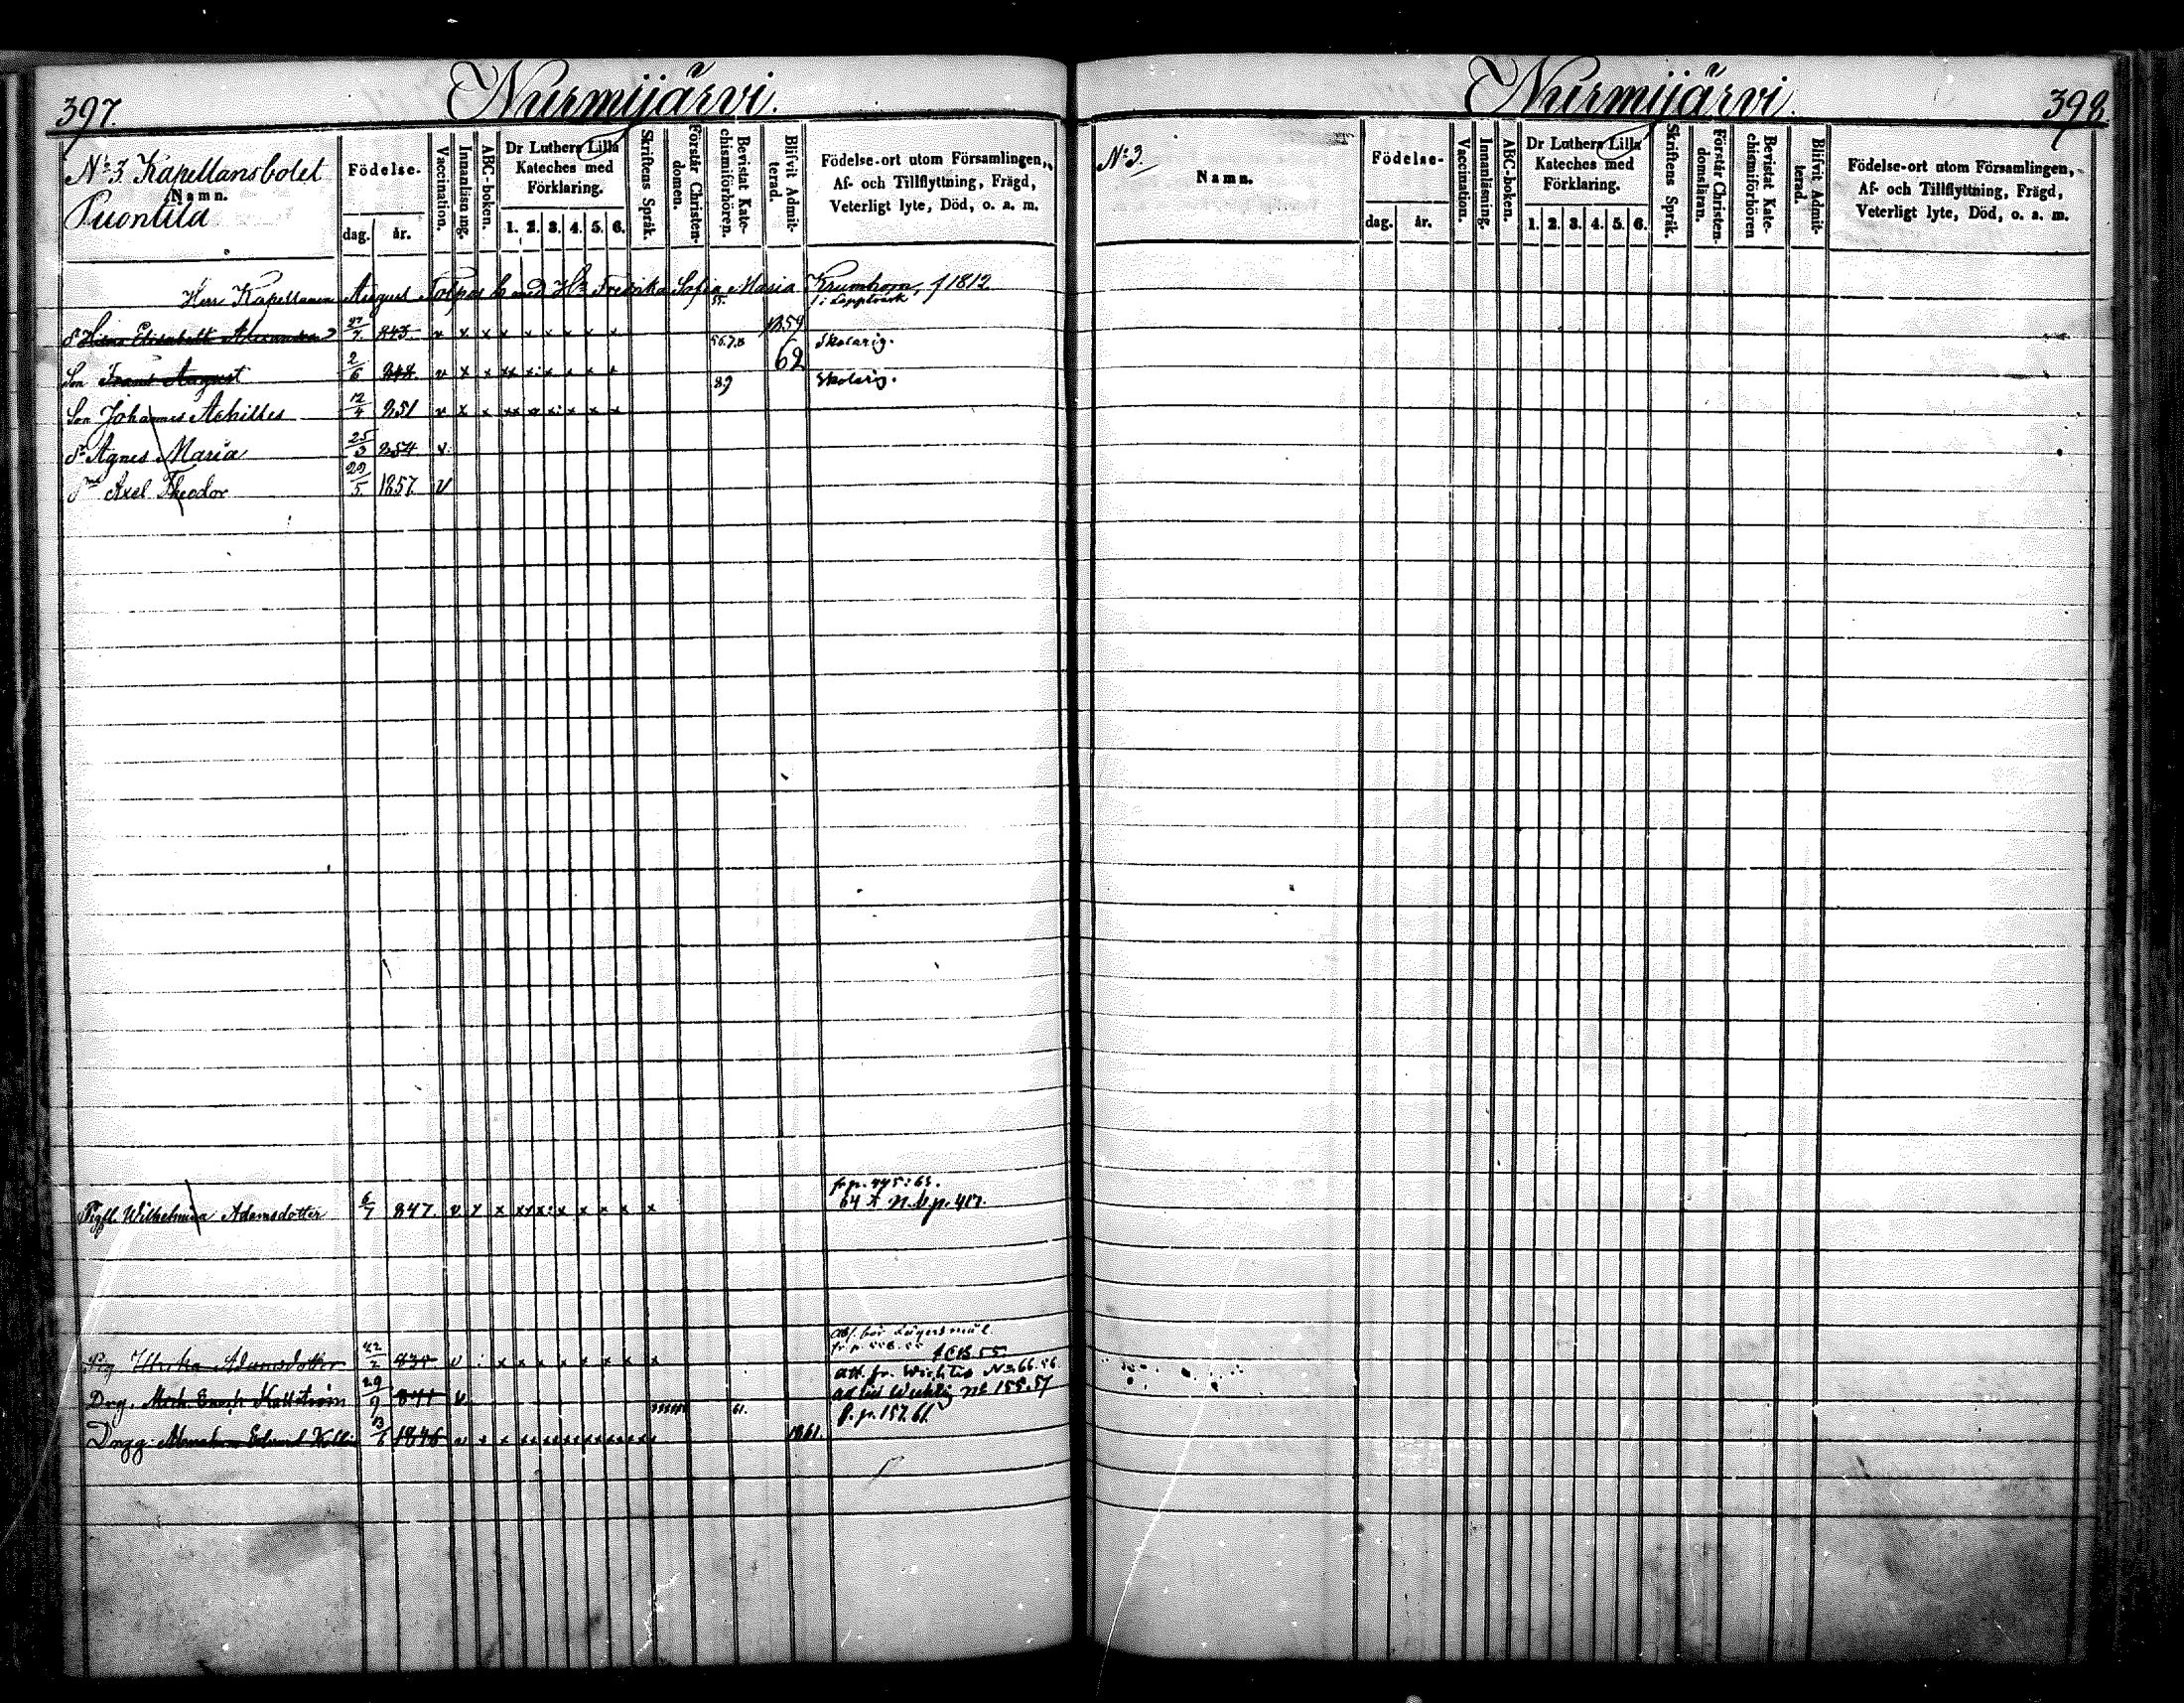 397.
Nurmijärvi.
No 3 Kapellansbolet
Namn.
Puontila
Födelse.
dag.
år.
Vaccination.
Innanläsning.
ABC-boken.
Dr Luthers Lilla
Kateches med
Förklaring.
1. 2. 3. 4. 5. 6.
Skriftens Språk.
Förstår Christen-
domen.
Bevistat Kate-
chismiförhören.
Blifvit Admit-
terad.
Födelse-ort utom Församlingen,
Af- och Tillflyttning, Frägd,
Veterligt lyte, Död, o. a. m.
Herr Kapellanen August Tolpo med Fredrika Sofia Maria Krumhorn, f 1812
55.
i Lappträsk
Elisabeth 27/7 843 v x x x x x x x x 1859
56.7.8 Skolarig.
Son Frans August 2/6 848 v x x xx x: x x x x 62
89 Skolarig.
Son Johannes Achilles 12/4 851 v x x xx x: x x x
Agnes Maria 25/3 854 v.
Axel Theodor 22/5 1857. v
fr p. 445: 63.
64 t n. b p. 417.
Pigfl. Wilhelmina Adamsdotter 6/7 847. v x x xx x: x x x x x
Pig. Ulrika Adamsdotter 22/2 835 v : x x x x x x x x
Att. fr. Wichtis No 66.56
Drg. Enoch Kallström 29/9 841 v
No 155.57
61.
f. p. 157. 61.
Drgg. 13/6 1846 1861.
Nurmijärvi.
398
No 3.
Namn.
Födelse-
dag.
år.
Vaccination.
Innanläsning.
ABC-boken.
Dr Luthers Lilla
Kateches med
Förklaring.
1. 2. 3. 4. 5. 6.
Skriftens Språk.
Förstår Christen-
domsläran.
Bevistat Kate-
chismiförhören
Blifvit Admit-
terad.
Födelse-ort utom Församlingen,
Af- och Tillflyttning, Frägd,
Veterligt lyte, Död, o. a. m.